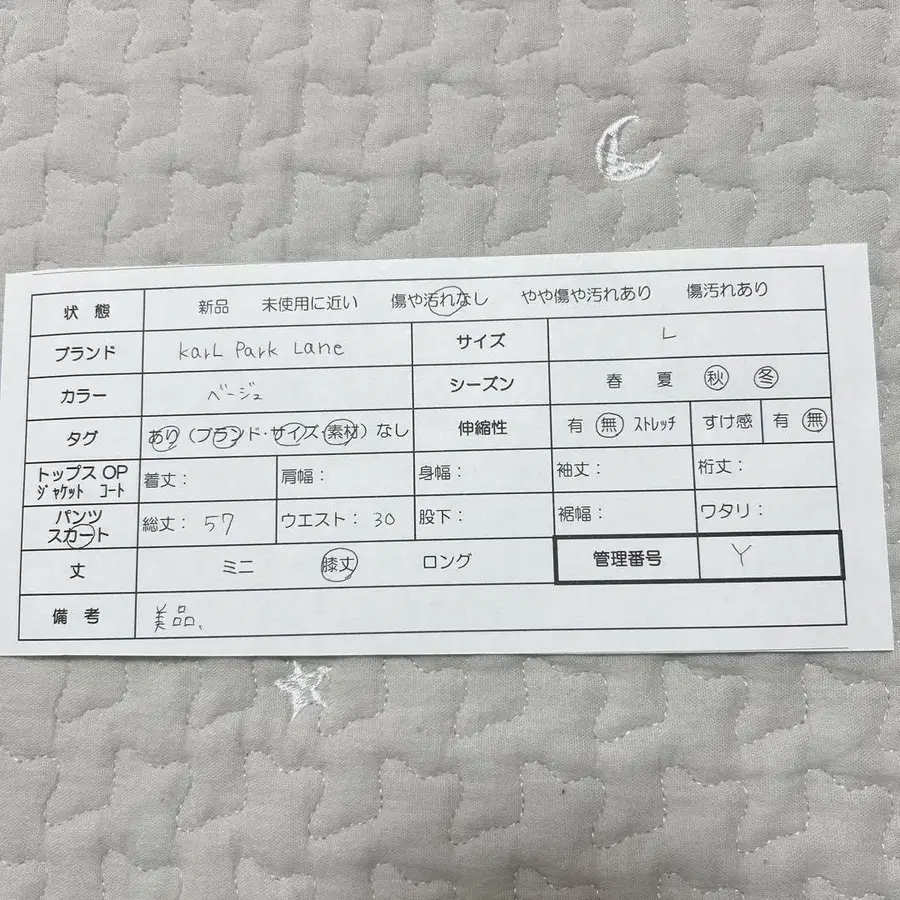 状態 新品 未使用に近い 傷や汚れなし やや傷や汚れあり 傷汚れあり
ブランド karL Park Lane サイズ L
カラー ベージュ シーズン 春 夏 秋 冬
タグ あり(ブランド・サイズ・素材)なし 伸縮性 有 無 ストレッチ すけ感 有 無
トップス OP
ジャケット コート 着丈: 肩幅: 身幅: 袖丈: 桁丈:
パンツ
スカート 総丈: 57 ウエスト: 30 股下: 裾幅: ワタリ:
丈 ミニ 膝丈 ロング 管理番号 Y
備考 美品、